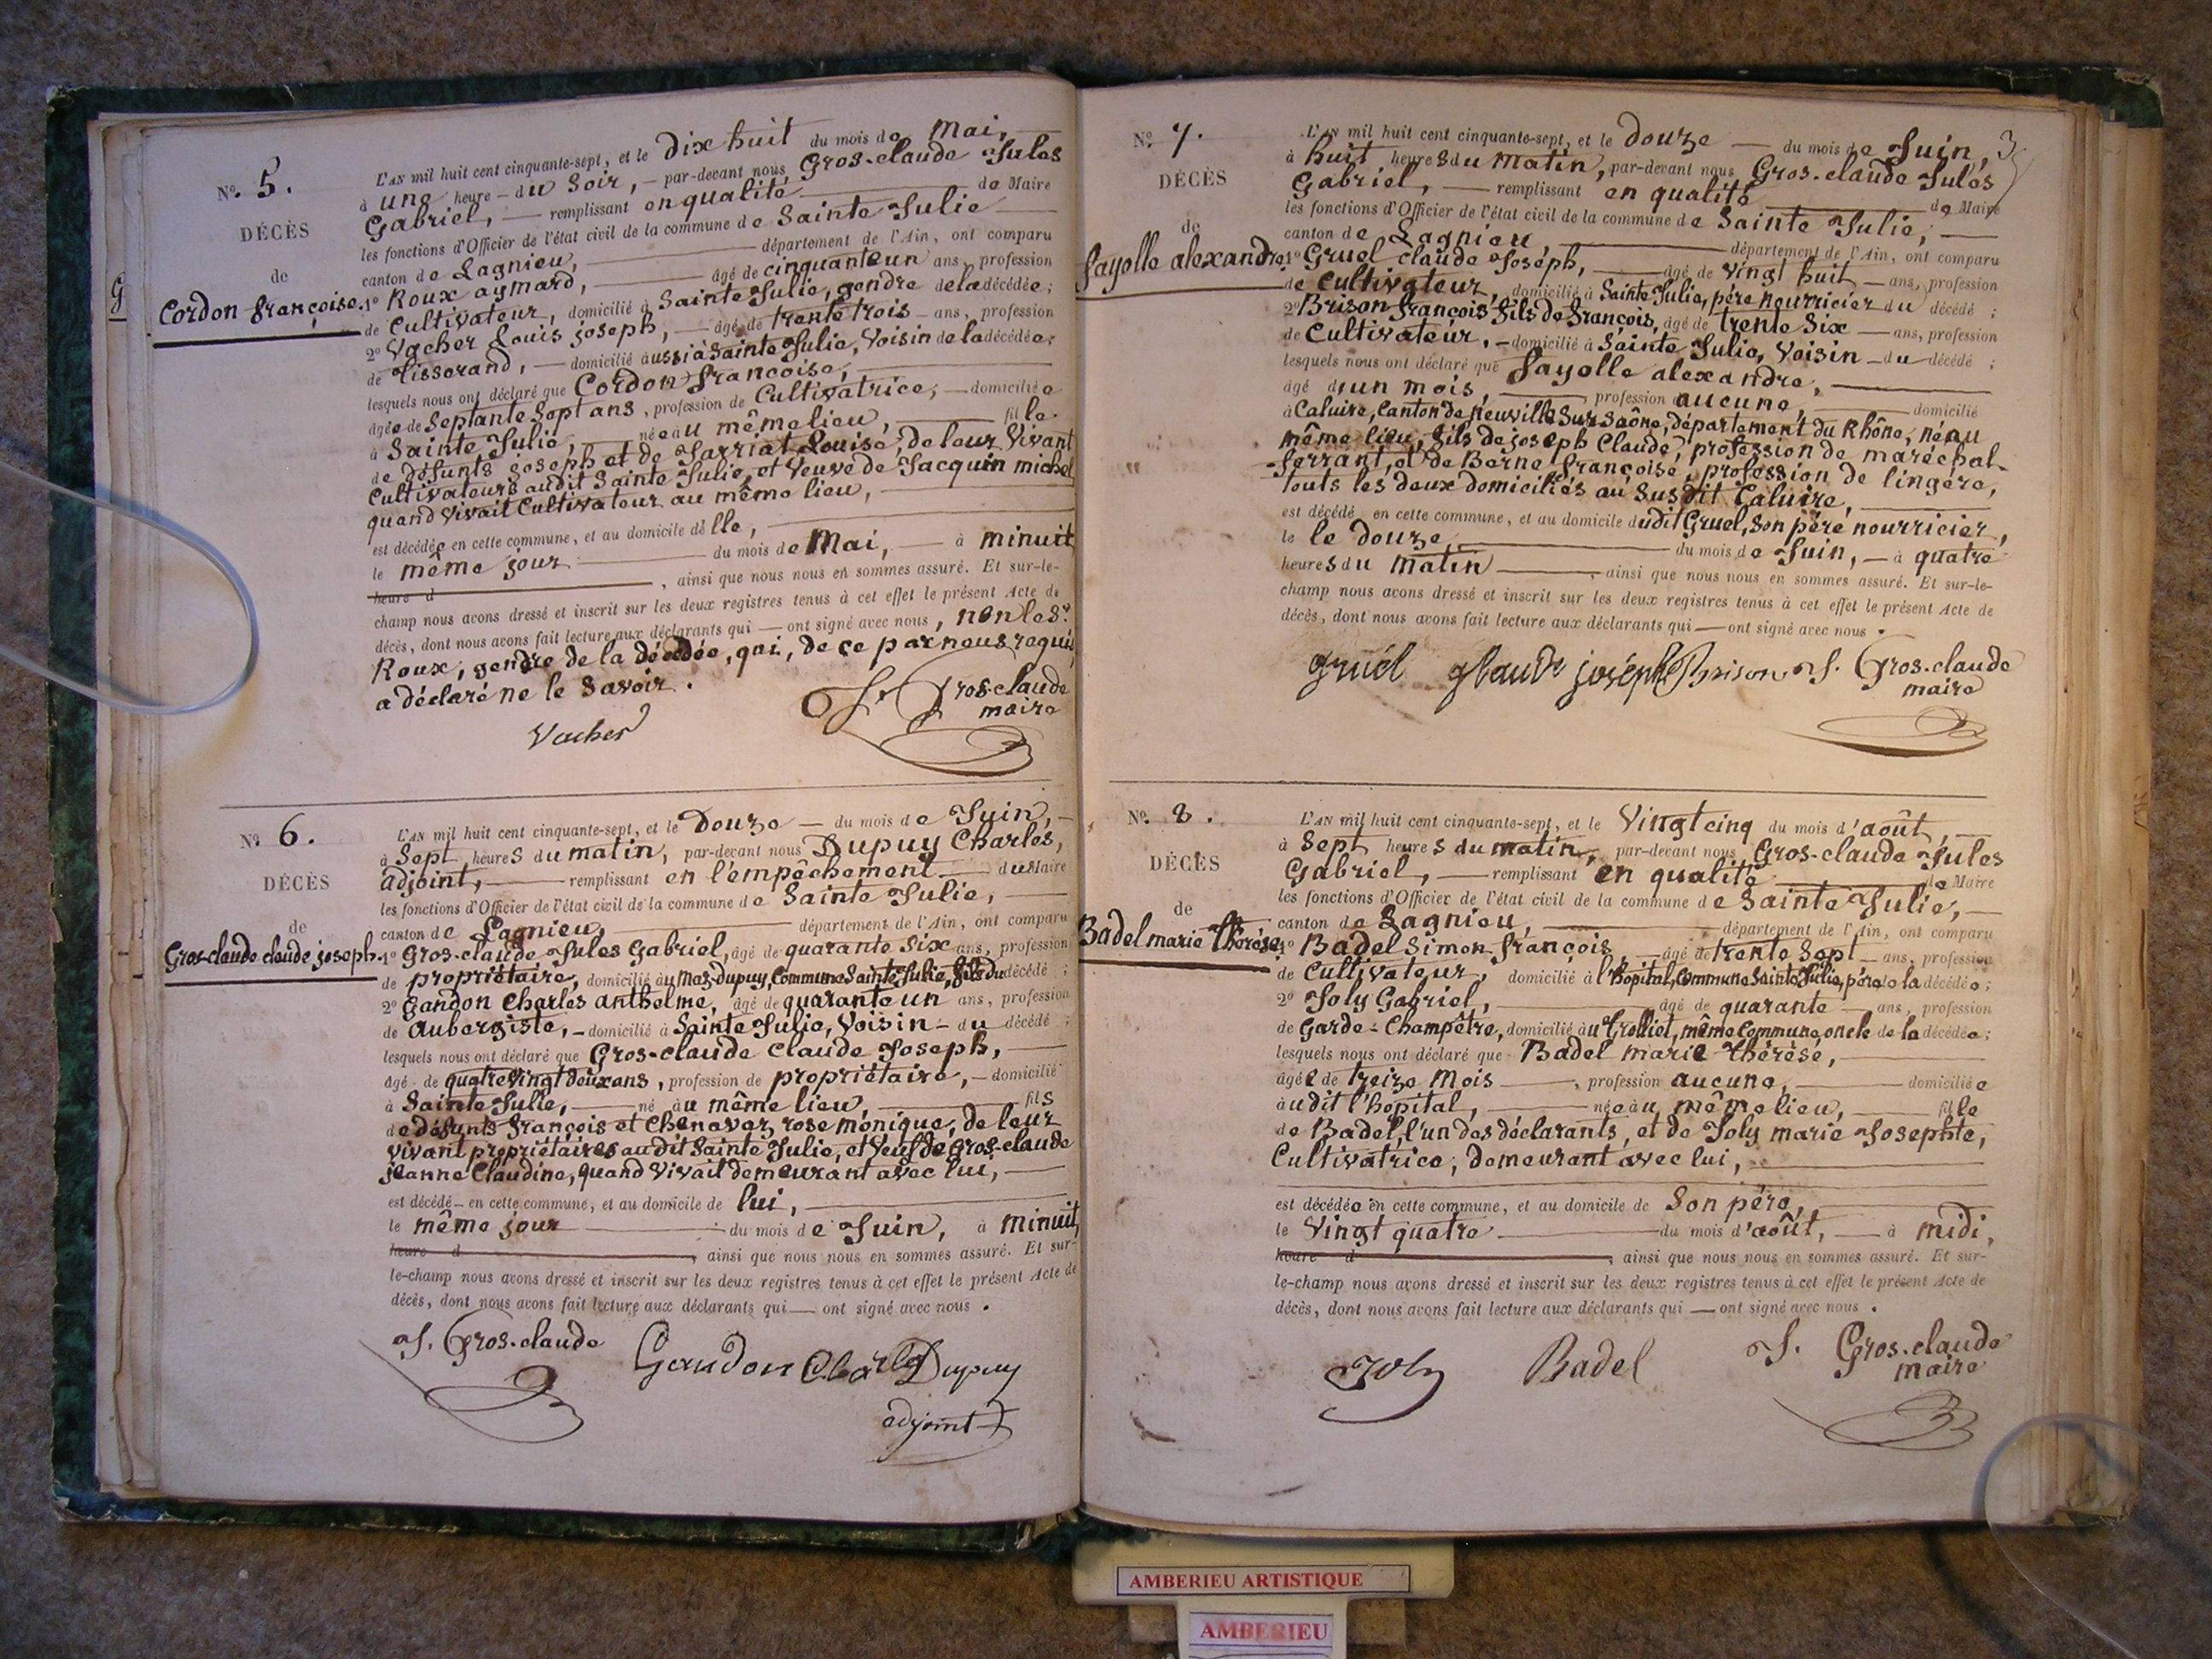 G
N.º 5.
DÉCÈS
de
Cordon françoise.
L'AN mil huit cent cinquante-sept, et le Dix huit du mois de Mai,
à une heure du Soir, par-devant nous, Gros-claude Jules
Gabriel, remplissant en qualité de Maire
les fonctions d'Officier de l'état civil de la commune de Sainte Julie
canton de Lagnieu, département de l'Ain, ont comparu
1º Roux aymard, âgé de cinquante un ans, profession
de Cultivateur, domicilié à Sainte Julie, gendre de la décédée;
2º Vacher Louis joseph, âgé de trente trois ans, profession
de Tisserand, domicilié aussi à Sainte Julie, Voisin de la décédée;
lesquels nous ont déclaré que Cordon françoise,
âgée de Septante Sept ans, profession de Cultivatrice, domiciliée
à Sainte Julie, née au même lieu, fille
de défunts joseph et de Louise, de leur Vivant
Cultivateurs audit Sainte Julie, et Veuve de Jacquin michel
quand Vivait Cultivateur au même lieu,
est décédée en cette commune, et au domicile d'elle,
le même jour du mois de Mai, à minuit
heure d , ainsi que nous nous en sommes assuré. Et sur-le-
champ nous avons dressé et inscrit sur les deux registres tenus à cet effet le présent Acte de
décès, dont nous avons fait lecture aux déclarants qui ont signé avec nous, non le sr
Roux, gendre de la décédée, qui, de ce par nous requis,
a déclaré ne le Savoir.
Vacher
J. Gros-claude
maire
N.º 6.
DÉCÈS
de
Gros-claude claude joseph.
L'AN mil huit cent cinquante-sept, et le Douze du mois de Juin,
à Sept heures du matin, par-devant nous Dupuy Charles,
adjoint, remplissant en l'empêchement du Maire
les fonctions d'Officier de l'état civil de la commune de Sainte Julie,
canton de Lagnieu, département de l'Ain, ont comparu
1º Gros-claude Jules Gabriel, âgé de quarante Six ans, profession
de propriétaire, domicilié au Mas-Dupuy, Commune Sainte Julie, fils du décédé;
2º Gandon Charles anthelme, âgé de quarante un ans, profession
de aubergiste, domicilié à Sainte Julie, Voisin du décédé;
lesquels nous ont déclaré que Gros-claude Claude Joseph,
âgé de quatre Vingt deux ans, profession de propriétaire, domicilié
à Sainte Julie, né au même lieu, fils
de défunts françois et Chenavaz rose monique, de leur
vivant propriétaires audit Sainte Julie, et Veuf de Gros-claude
jeanne Claudine, quand Vivait demeurant avec lui,
est décédé en cette commune, et au domicile de lui,
le même jour du mois de Juin, à minuit,
heure d , ainsi que nous nous en sommes assuré. Et sur-
le-champ nous avons dressé et inscrit sur les deux registres tenus à cet effet le présent Acte de
décès, dont nous avons fait lecture aux déclarants qui ont signé avec nous.
J. Gros-claude
Gandon Charles Dupuy
adjoint
3
N.º 7.
DÉCÈS
de
fayolle alexandre.
L'AN mil huit cent cinquante-sept, et le douze du mois de Juin,
à huit heures du matin, par-devant nous, Gros-claude Jules
Gabriel, remplissant en qualité de Maire
les fonctions d'Officier de l'état civil de la commune de Sainte Julie,
canton de Lagnieu, département de l'Ain, ont comparu
1º Gruel claude Joseph, âgé de vingt huit ans, profession
de Cultivateur, domicilié à Sainte Julie, père nourricier du décédé;
2º Brison françois fils de françois, âgé de trente Six ans, profession
de Cultivateur, domicilié à Sainte Julie, Voisin du décédé;
lesquels nous ont déclaré que fayolle alexandre,
âgé d'un mois, profession aucune, domicilié
à Caluire, Canton de Neuville Sur Saône, département du Rhône, né au
même lieu, fils de joseph Claude, profession de maréchal-
ferrant, et de Berne françoise, profession de lingère,
touts les deux domiciliés au susdit Caluire,
est décédé en cette commune, et au domicile dudit Gruel, Son père nourricier,
le le douze du mois de Juin, à quatre
heures du matin, ainsi que nous nous en sommes assuré. Et sur-le-
champ nous avons dressé et inscrit sur les deux registres tenus à cet effet le présent Acte de
décès, dont nous avons fait lecture aux déclarants qui ont signé avec nous.
gruél glaude joséph Brison J. Gros-claude
maire
N.º 8.
DÉCÈS
de
Badel marie thérèse
L'AN mil huit cent cinquante-sept, et le Vingt cinq du mois d'août,
à Sept heures du matin, par-devant nous, Gros-claude Jules
Gabriel, remplissant en qualité de Maire
les fonctions d'Officier de l'état civil de la commune de Sainte Julie,
canton de Lagnieu, département de l'Ain, ont comparu
1º Badel Simon françois, âgé de trente Sept ans, profession
de Cultivateur, domicilié à l'hopital, Commune Sainte Julie, père de la décédée;
2º Joly Gabriel, âgé de quarante ans, profession
de Garde-Champêtre, domicilié au Trolliet, même Commune, oncle de la décédée;
lesquels nous ont déclaré que Badel marie thérèse,
âgée de treize mois, profession aucune, domiciliée
audit l'hopital, née au même lieu, fille
de Badel, l'un des déclarants, et de Joly marie Josephte,
Cultivatrice, demeurant avec lui,
est décédée en cette commune, et au domicile de Son père,
le Vingt quatre du mois d'août, à midi,
heure d , ainsi que nous nous en sommes assuré. Et sur-
le-champ nous avons dressé et inscrit sur les deux registres tenus à cet effet le présent Acte de
décès, dont nous avons fait lecture aux déclarants qui ont signé avec nous.
Joly Badel J. Gros-claude
maire
AMBERIEU ARTISTIQUE
AMBERIEU